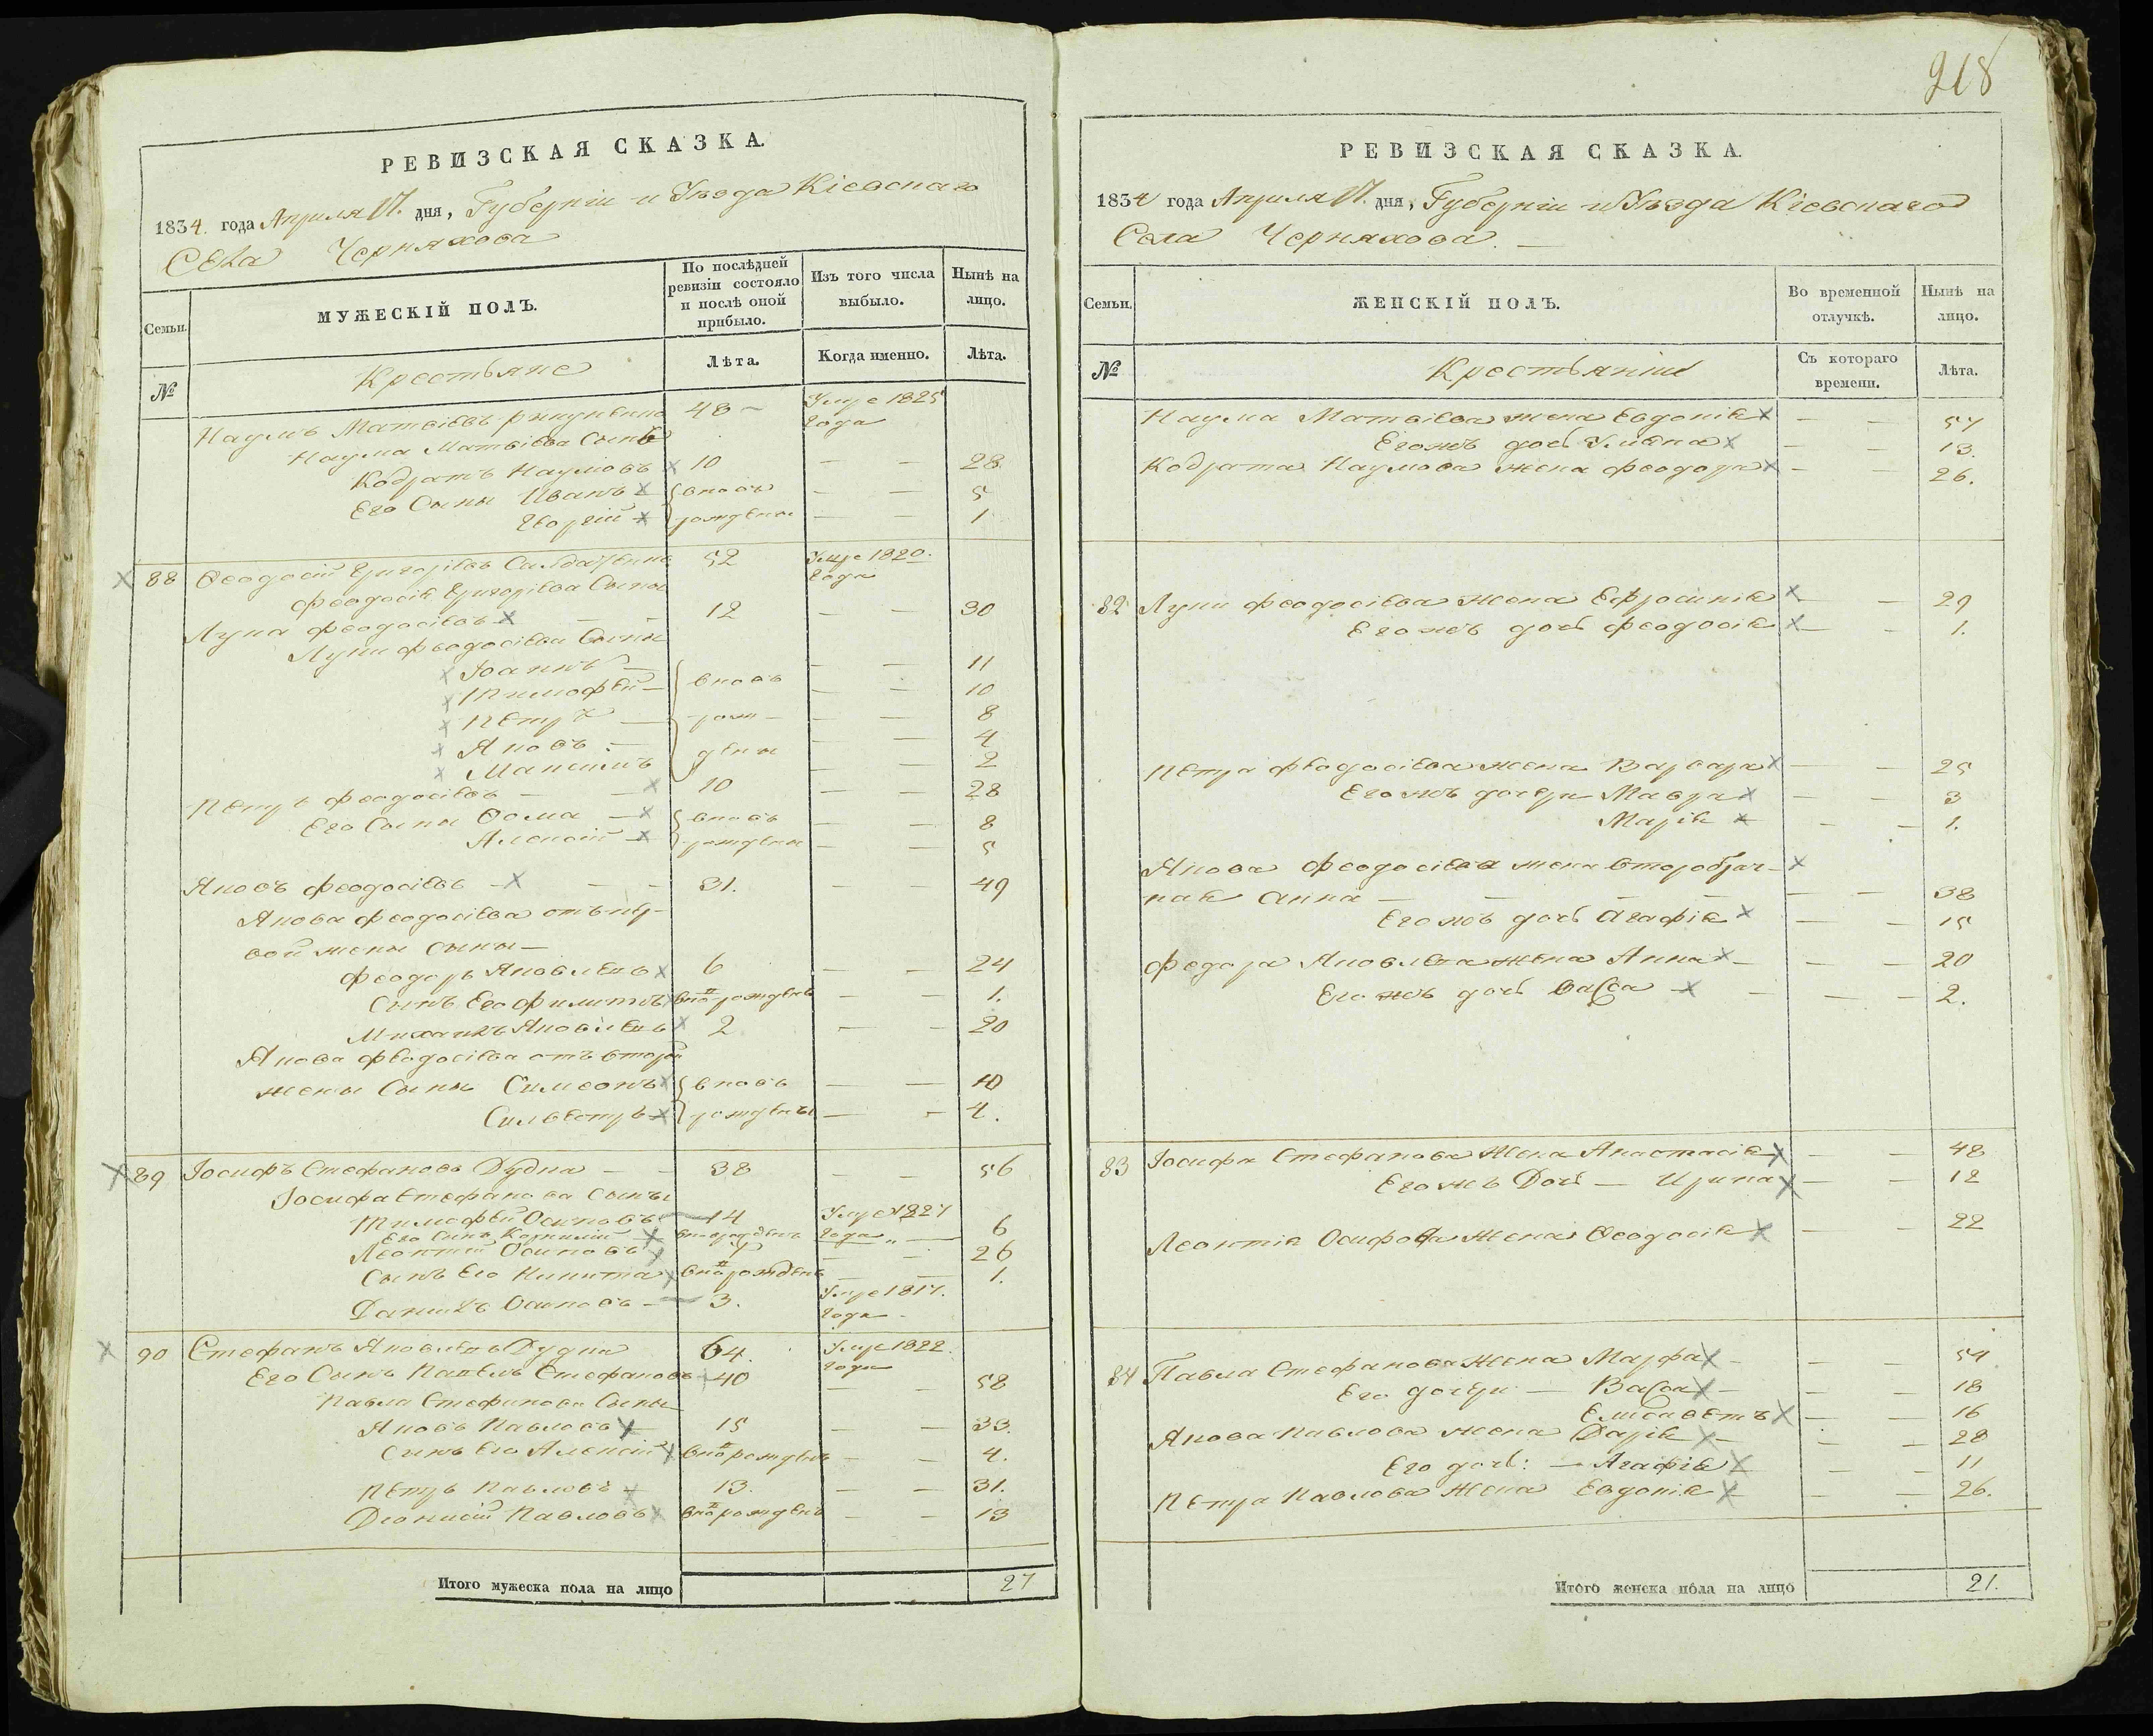 РЕВИЗСКАЯ СКАЗКА.
1834. года Апреля 17. дня, Губерніи и Уѣзда Кіевскаго
Села Черняхова
Семьи.
МУЖЕСКІЙ ПОЛЪ.
По послѣдней ревизіи состояло и послѣ оной прибыло.
Изъ того числа выбыло.
Нынѣ на лицо.
№
Крестьяне
Лѣта.
Когда именно.
Лѣта.
Наумъ Матвіевъ 48 Умре 1825 года
Наума Матвіева Сынъ
Кодратъ Наумовъ х 10 — — 28
Его Сыны Иванъ х вновь — — 5
Георгій х рождены — — 1
х 88 Ѳеодосій Григоріевъ 52 Умре 1820. года
Феодосія Григоріева Сыны
Лука Феодосіевъ х — — 12 — — 30
Луки Феодосіева Сыны
х Іоаннъ — вновь — — 11
х Тимофей — — — 10
х Петръ — рож- — — 8
х Яковъ — — — 4
х Максимъ дены — — 2
Петръ Феодосіевъ — — х 10 — — 28
Его Сыны Ѳома — х вновь — — 8
Алексій — х рождены — — 5
Яковъ Феодосіевъ — х — — 31. — — 49
Якова Феодосіева отъ пер-
вой жены Сыны —
Феодоръ Яковлевъ х 6 — — 24
Сынъ Его Филиппъ х вно рожденъ — — 1.
Михаилъ Яковлевъ х 2 — — 20
Якова Феодосіева отъ второй
жены Сыны Симеонъ х вновь — — 10
Сильвестръ х рождены — — 4.
х 89 Іосифъ Стефановъ Дудка — — 38 — — 56
Іосифа Стефанова Сыны
Тимофей Осиповъ — 14 Умре 1827
Его Сынъ Корнилій х вно рожденъ года „ — 6
Леонтій Осиповъ х — — 26
Сынъ Его Никита х вно рожденъ — — 1.
Данилъ Осиповъ — 3. Умре 1817. года
х 90 Стефанъ Яковлевъ Дудка 64. Умре 1822. года
Его Сынъ Павелъ Стефановъ 40 — — 58
Павла Стефанова Сыны
Яковъ Павловъ х 15 — — 33.
Сынъ Его Алексій х вно рожденъ — — 4.
Петръ Павловъ х 13. — — 31.
Діонисій Павловъ х вно рожденъ — — 13
Итого мужеска пола на лицо 27
218
РЕВИЗСКАЯ СКАЗКА.
1834 года Апреля 17. дня, Губерніи и Уѣзда Кіевскаго
Села Черняхова. —
Семьи.
ЖЕНСКІЙ ПОЛЪ.
Во временной отлучкѣ.
Нынѣ на лицо.
№
Крестьянки
Съ котораго времени.
Лѣта.
Наума Матвіева жена Евдокія х — — 57
Егожъ дочь Уліяна х — — 13.
Кодрата Наумова жена Феодора х — — 26.
82 Луки Феодосіева жена Ефросинія х — — 29
Егожъ дочь Феодосія х — — 1.
Петра Феодосіева жена Варвара х — — 25
Егожъ дочери Мавра х — — 3
Марія х — — 1.
Якова Феодосіева жена второбрач- х
ная Анна — — — — — 38
Егожъ дочь Агафія х — — 15
Федора Яковлева жена Анна х — — — 20
Егожъ дочь Васса — х — — — 2.
83 Іосифа Стефанова Жена Анастасія х — — 48
Егожъ Дочь — Ирина х — — 12
Леонтія Осифова Жена Ѳеодосія х — — 22
84 Павла Стефанова Жена Марфа х — — — 54
Его дочери — Васса х — — — 18
Елисаветъ х — — 16
Якова Павлова жена Дарія х — — — 28
Его дочь: — Агафія х — — 11
Петра Павлова Жена Евдокія х — — 26.
Итого женска пола на лицо 21.